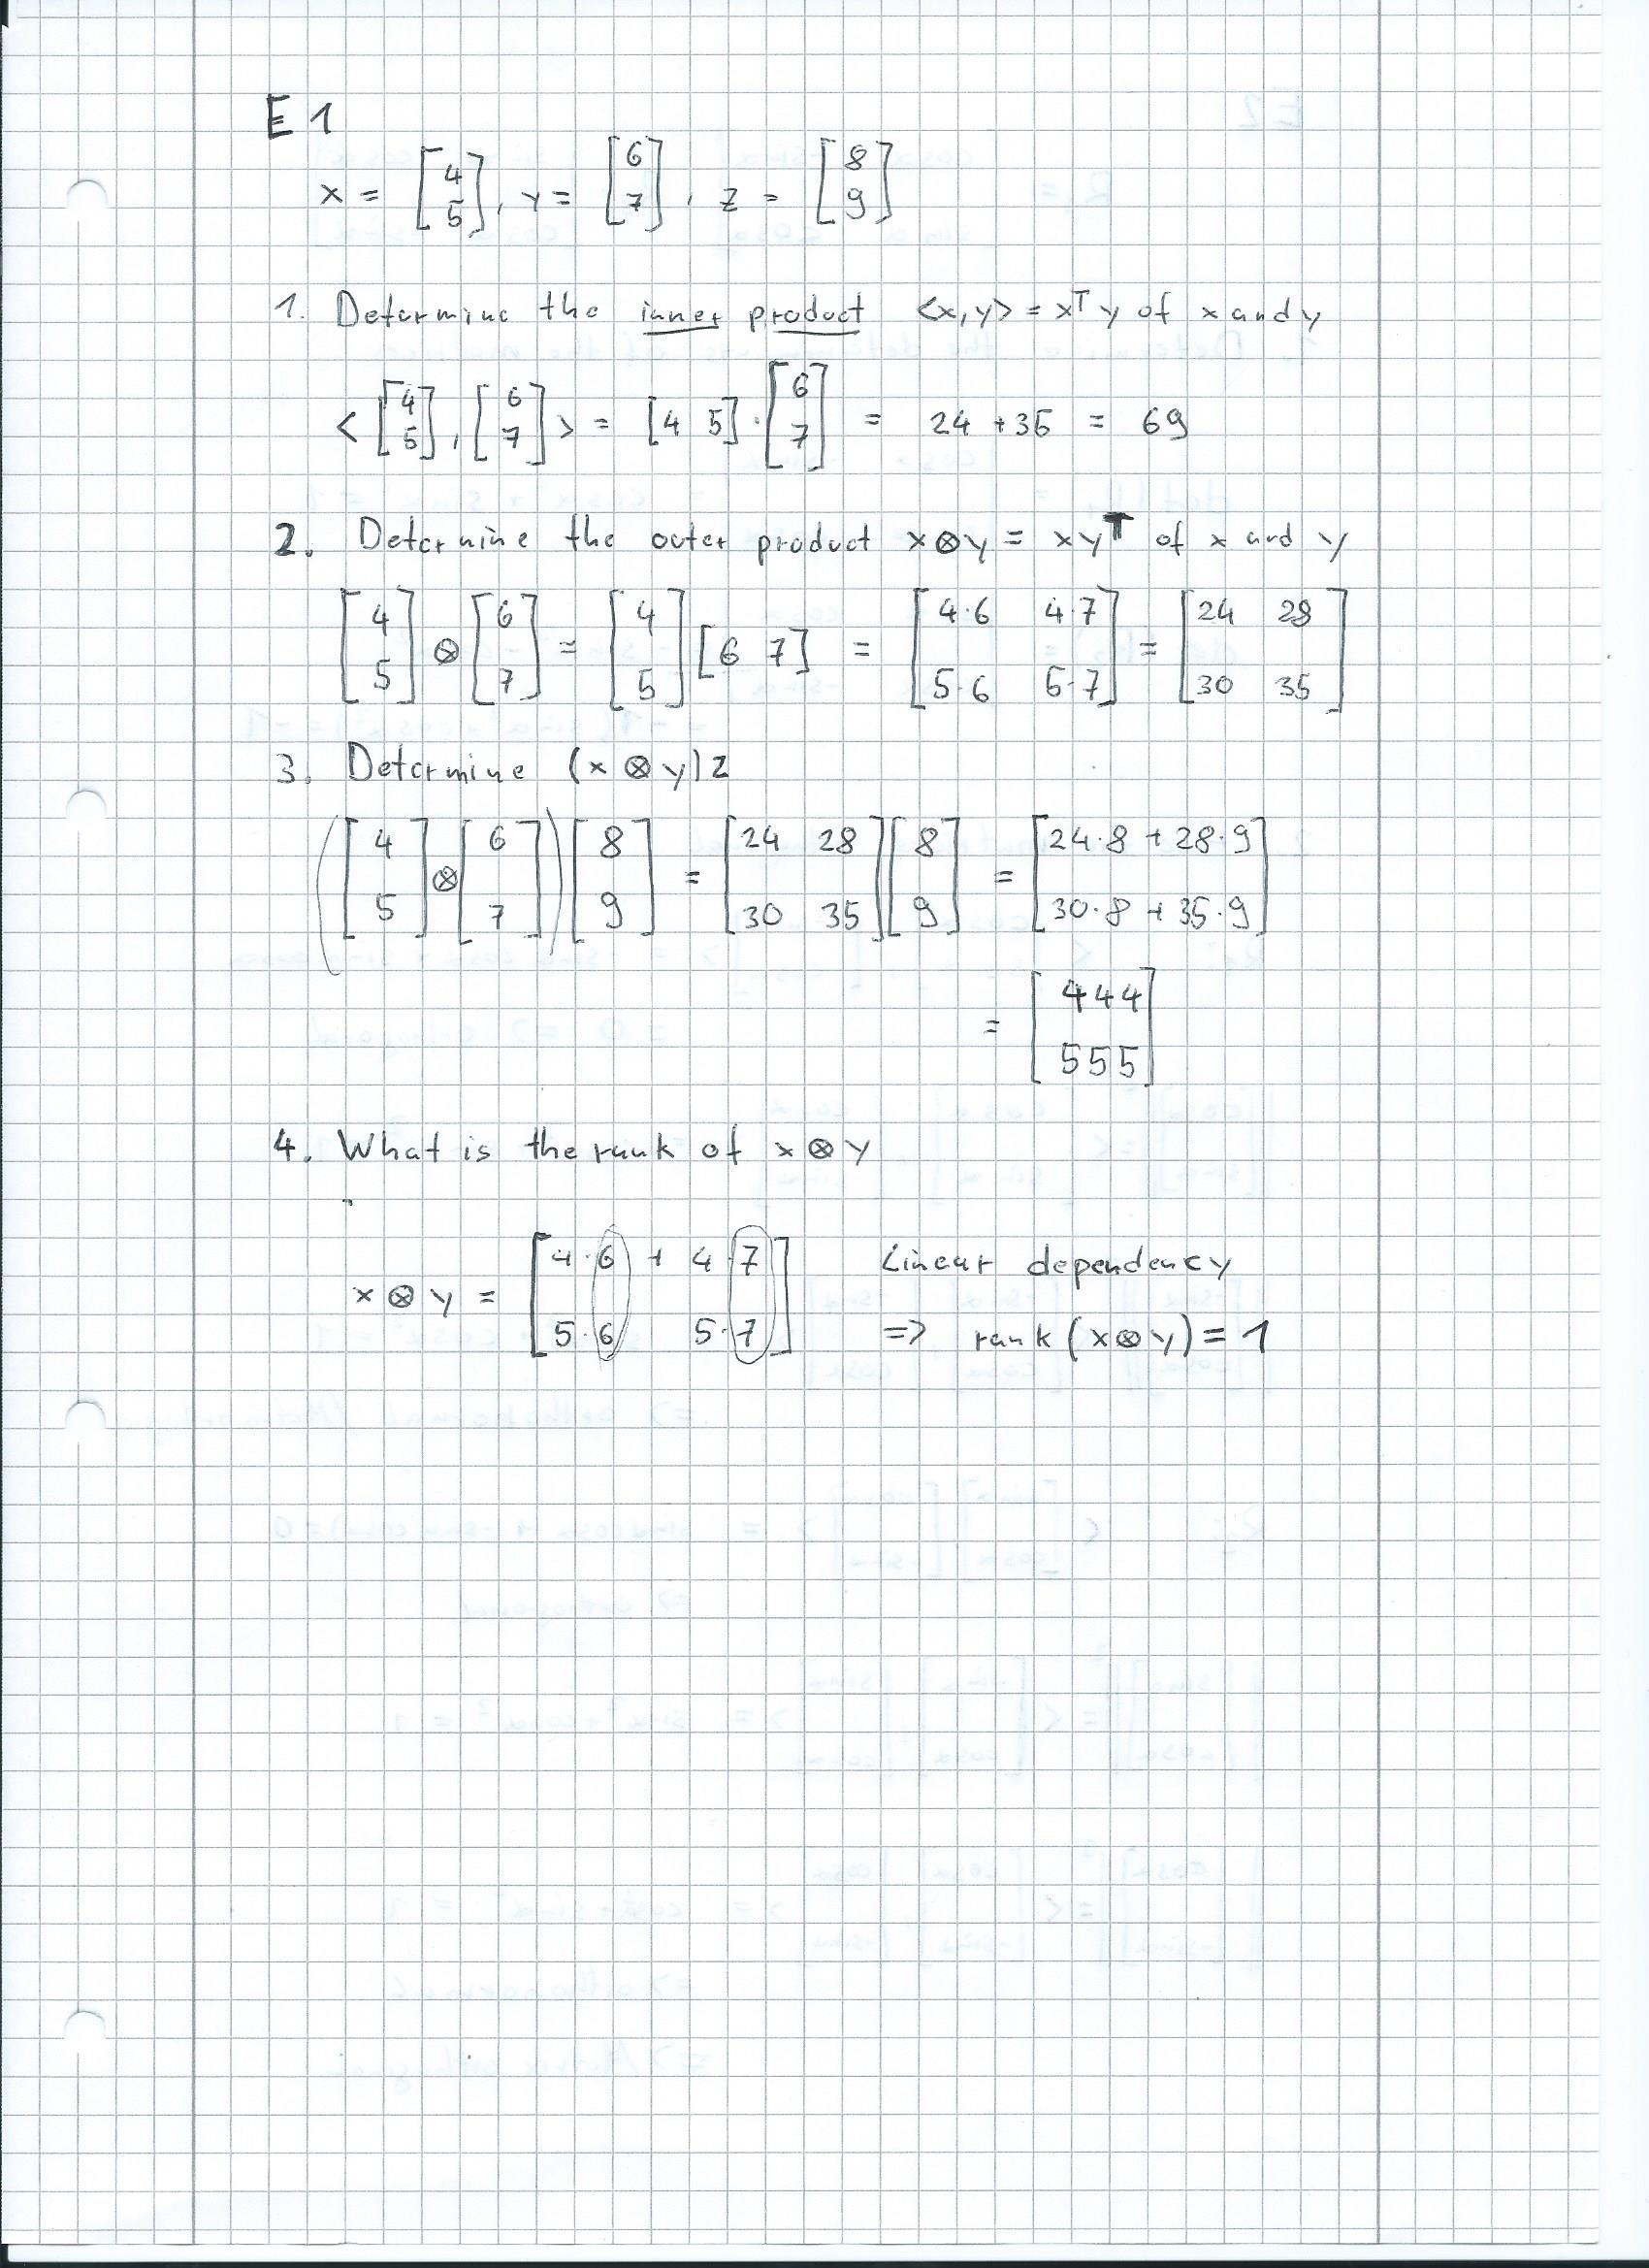 E 1
x = [4 5], y = [6 7], z = [8 9]
1. Determine the inner product <x,y> = xᵀy of x and y
< [4 5], [6 7] > = [4 5] · [6 7] = 24 + 35 = 69
2. Determine the outer product x⊗y = xyᵀ of x and y
[4 5] ⊗ [6 7] = [4 5] [6 7] = [4·6 4·7 5·6 5·7] = [24 28 30 35]
3. Determine (x ⊗ y) z
([4 5] ⊗ [6 7]) [8 9] = [24 28 30 35] [8 9] = [24·8 + 28·9 30·8 + 35·9]
= [444 555]
4. What is the rank of x ⊗ y
x ⊗ y = [4·6 + 4·7 5·6 5·7] Linear dependency
=> rank (x⊗y) = 1